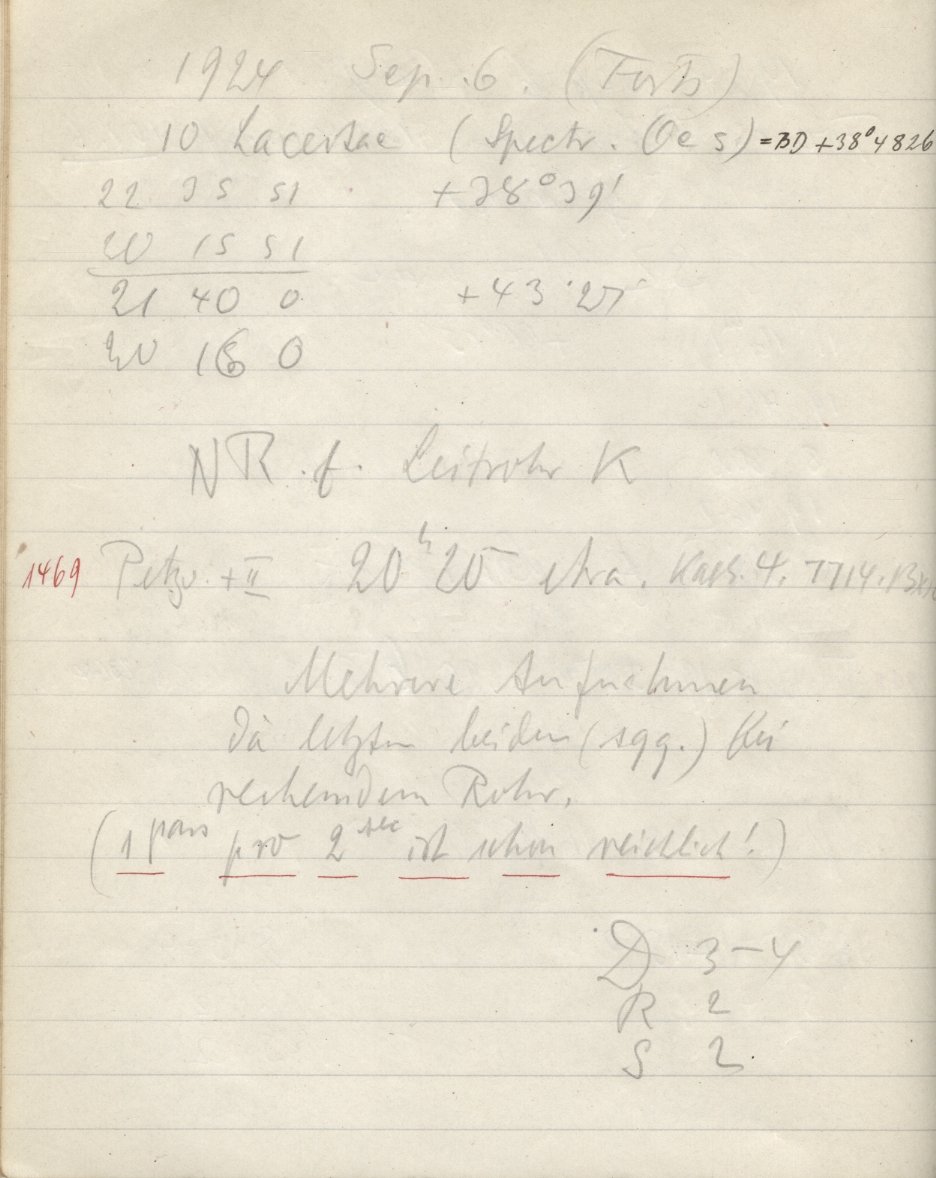 1924 Sep. 6. (Forts)
10 Lacertae (Spectr. Oe 5) = BD +38° 4826
22 35 51 +38° 39'
20 15 51
21 40 0 +43 27
20 16 0
NR. f. Leitrohr K
1469 Petzv. + II 20h 25 etwa. Kass. 4. 7714.
Mehrere Aufnahmen
die letzten beiden (sqq.) bei
rechemdem Rohr.
(1 pars pro 2 sec ist schon reichlich!)
D 3-4
R 2
S 2.